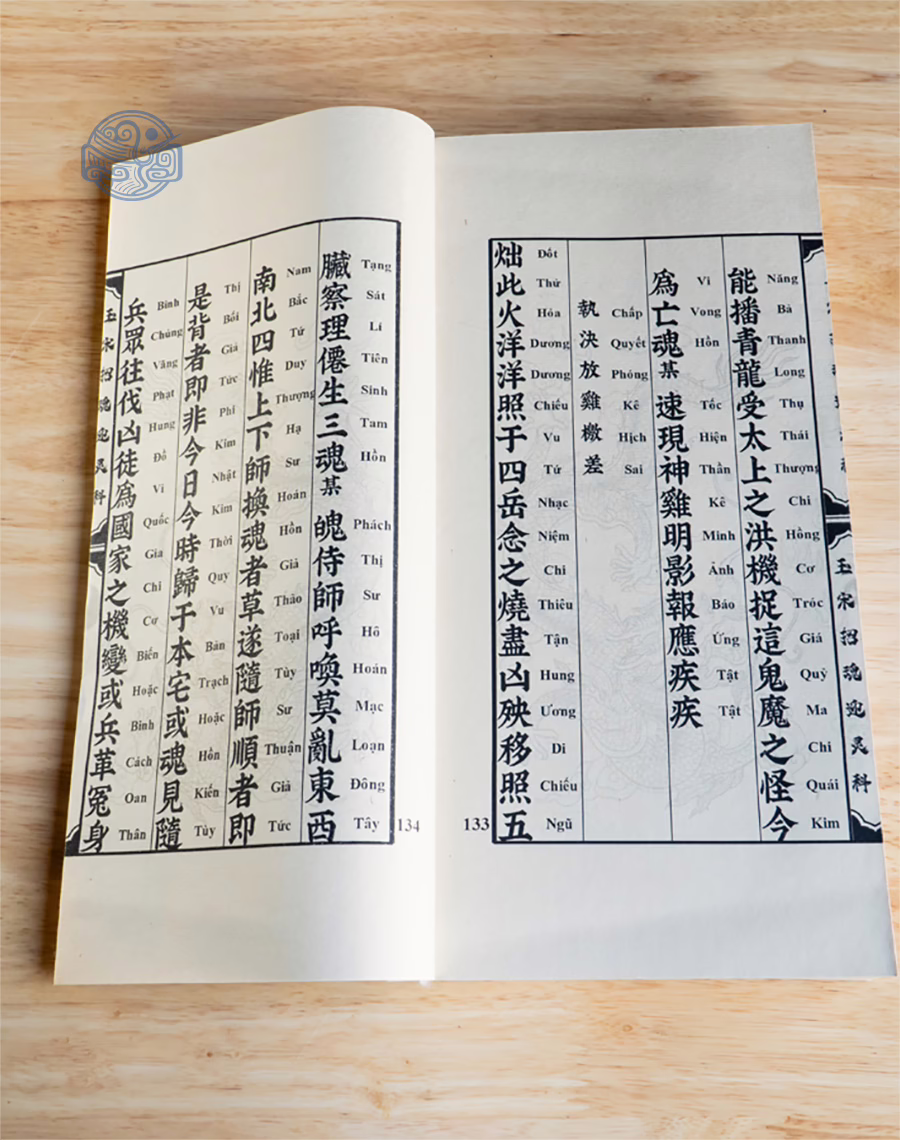 能播青龍受太上之洪機捉這鬼魔之怪今
Năng Bà Thanh Long Thụ Thái Thượng Chi Hồng Cơ Tróc Giá Quỷ Ma Chi Quái Kim
爲亡魂某速現神雞明影報應疾疾
Vi Vong Hồn Tốc Hiện Thần Kê Minh Ảnh Báo Ứng Tật Tật
執決放雞檄差
Chấp Quyết Phóng Kê Hịch Sai
炪此火洋洋照于四岳念之燒盡凶殃移照五
Đốt Thử Hỏa Dương Dương Chiếu Vu Tứ Nhạc Niệm Chi Thiêu Tận Hung Ương Di Chiếu Ngũ
133
臟察理僊生三魂某魄侍師呼喚莫亂東西
Tạng Sát Lí Tiên Sinh Tam Hồn Phách Thị Sư Hô Hoán Mạc Loạn Đông Tây
南北四惟上下師換魂者草遂隨師順者即
Nam Bắc Tứ Duy Thượng Hạ Sư Hoán Hồn Giả Thảo Toại Tùy Sư Thuận Giả Tức
是背者即非今日今時歸于本宅或魂見隨
Thị Bối Giả Tức Phi Kim Nhật Kim Thời Quy Vu Bản Trạch Hoặc Hồn Kiến Tùy
兵眾往伐凶徒爲國家之機變或兵革冤身
Binh Chúng Vãng Phạt Hung Đồ Vi Quốc Gia Chi Cơ Biến Hoặc Binh Cách Oan Thân
134
玉宋招魂灵科